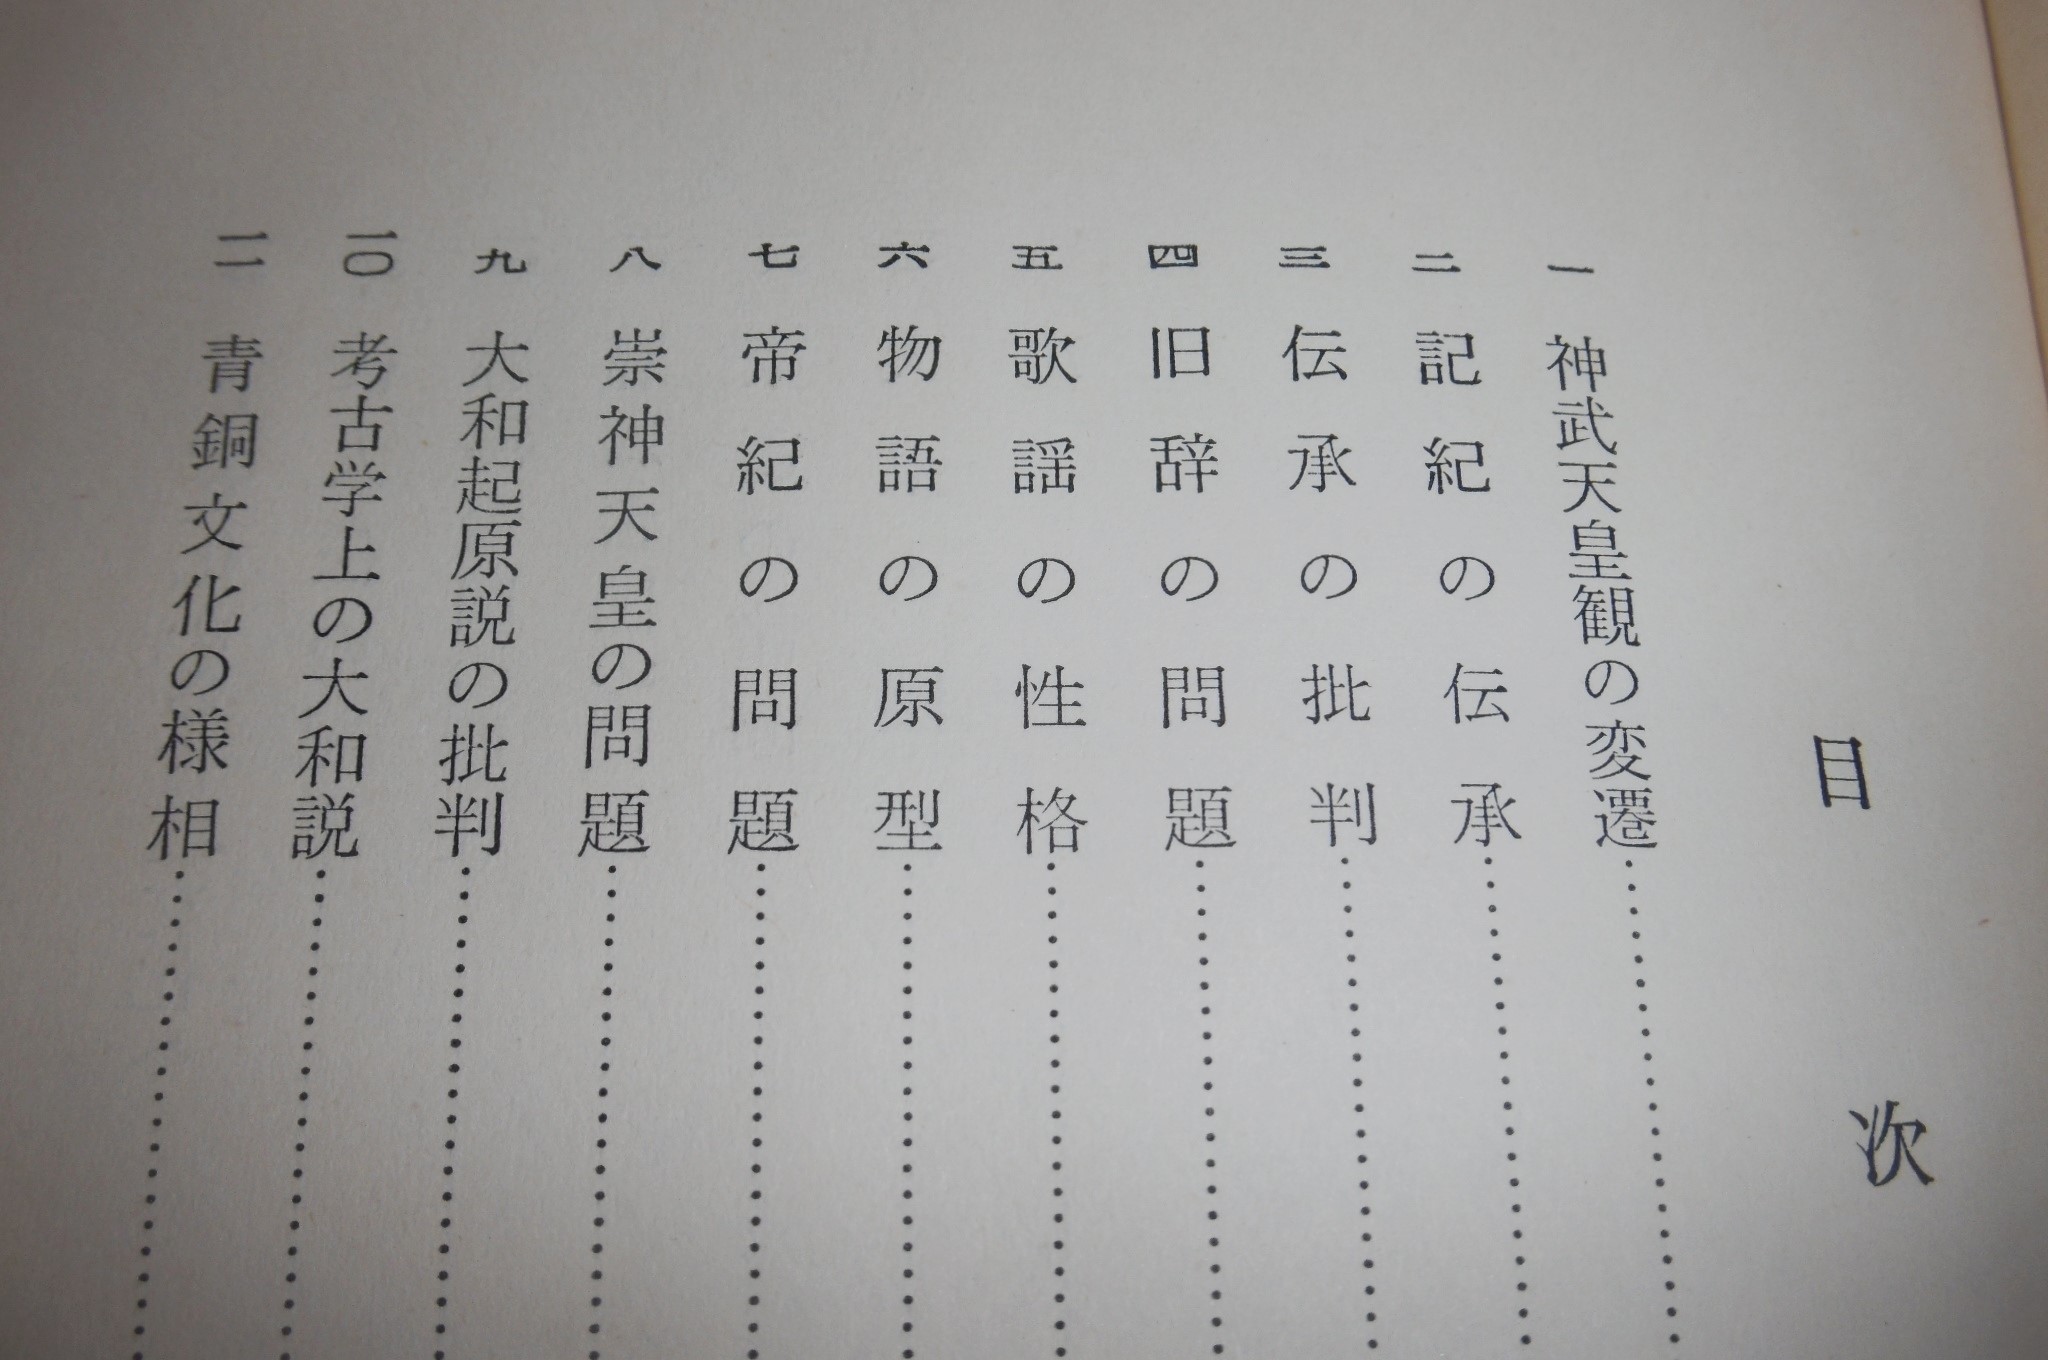 目次
一 神武天皇観の変遷
二 記紀の伝承
三 伝承の批判
四 旧辞の問題
五 歌謡の性格
六 物語の原型
七 帝紀の問題
八 崇神天皇の問題
九 大和起原説の批判
一〇 考古学上の大和説
一一 青銅文化の様相